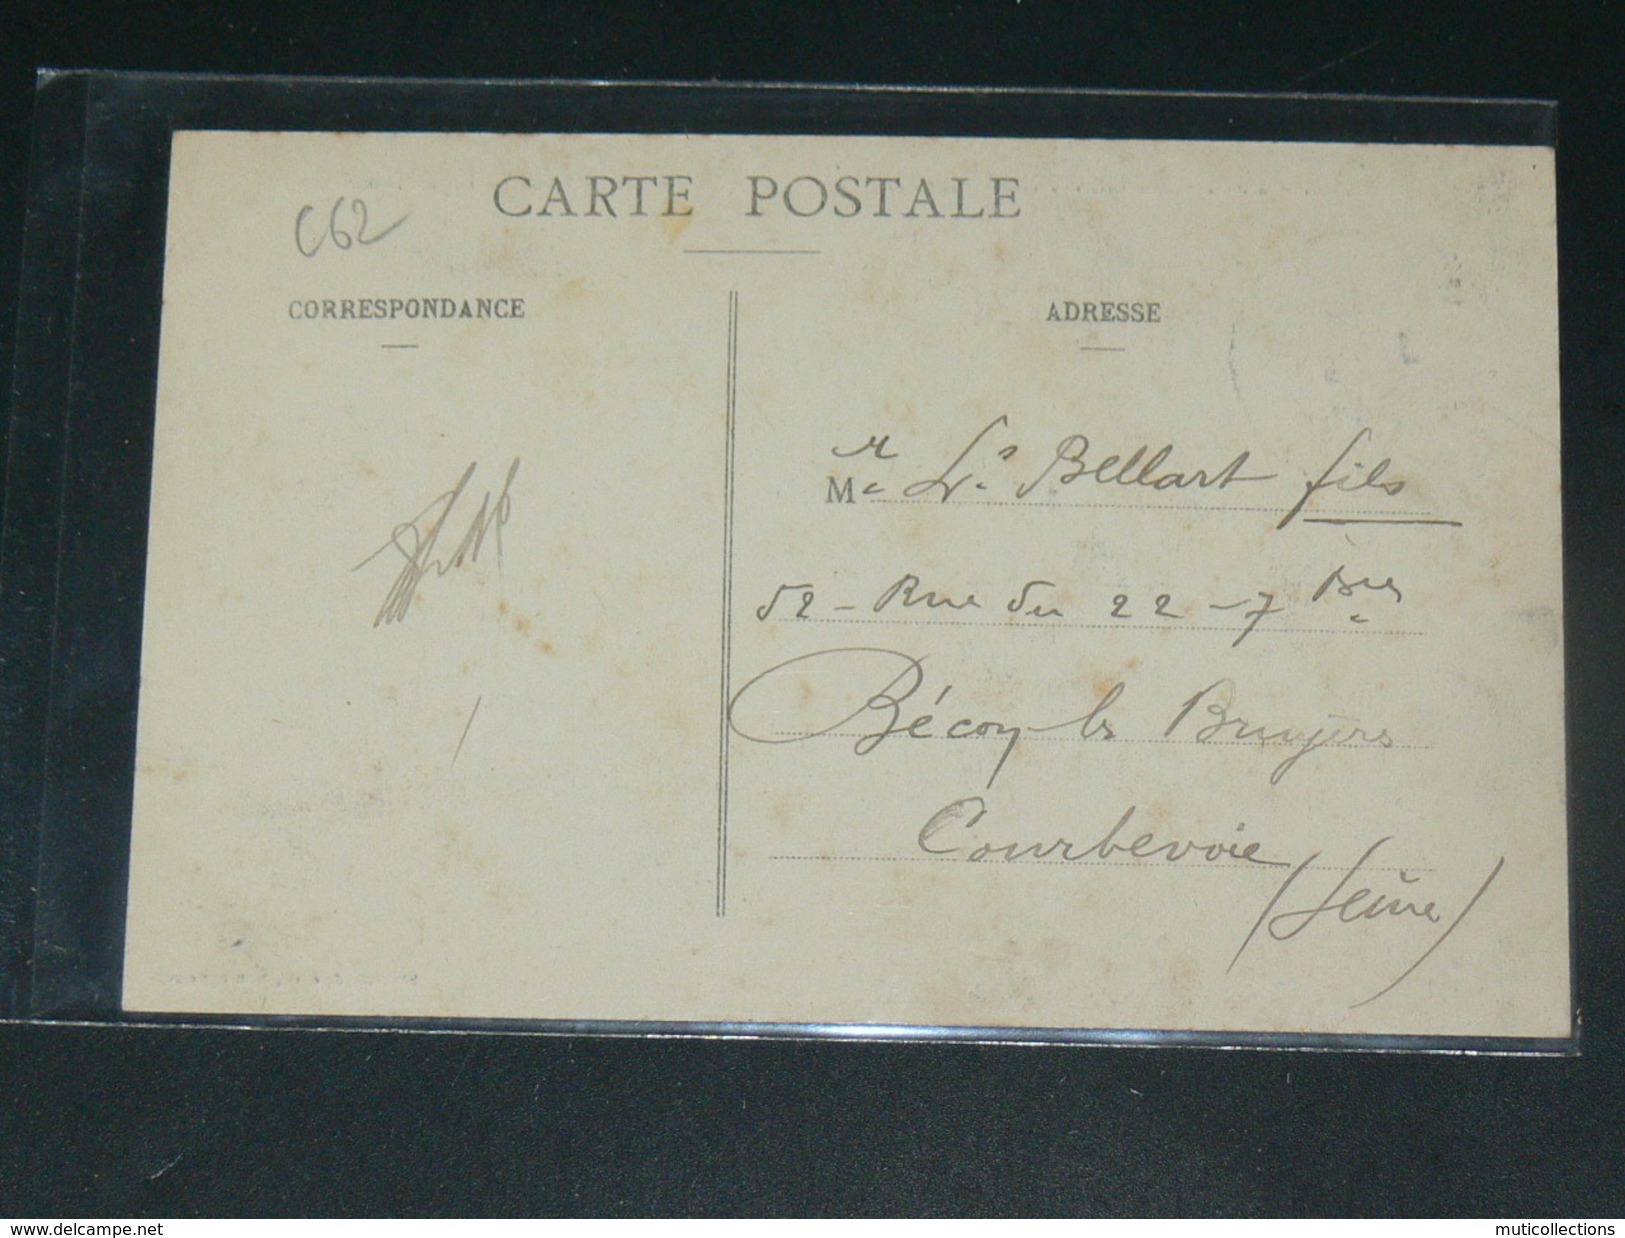 C62
CARTE POSTALE
CORRESPONDANCE
ADRESSE
Mr Ls Bellart fils
52 - Rue du 22 - 7bre
Bécon les Bruyères
Courbevoie
(Seine)
www.delcampe.net
muticollections